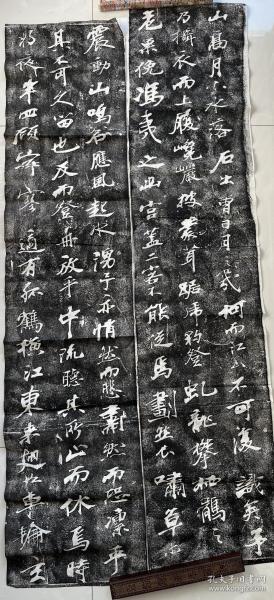 山高月小水落石出曾日月之幾何而江山不可復識矣予
乃攝衣而上履巉巖披蒙茸踞虎豹登虬龍攀栖鶻之
危巢俯馮夷之幽宮蓋二客不能從焉劃然長嘯草木
震動山鳴谷應風起水湧予亦悄然而悲肅然而恐凜乎
其不可久留也反而登舟放乎中流聽其所止而休焉時
將夜半四顧寂寥適有孤鶴橫江東來翅如車輪玄
孔夫子旧书网